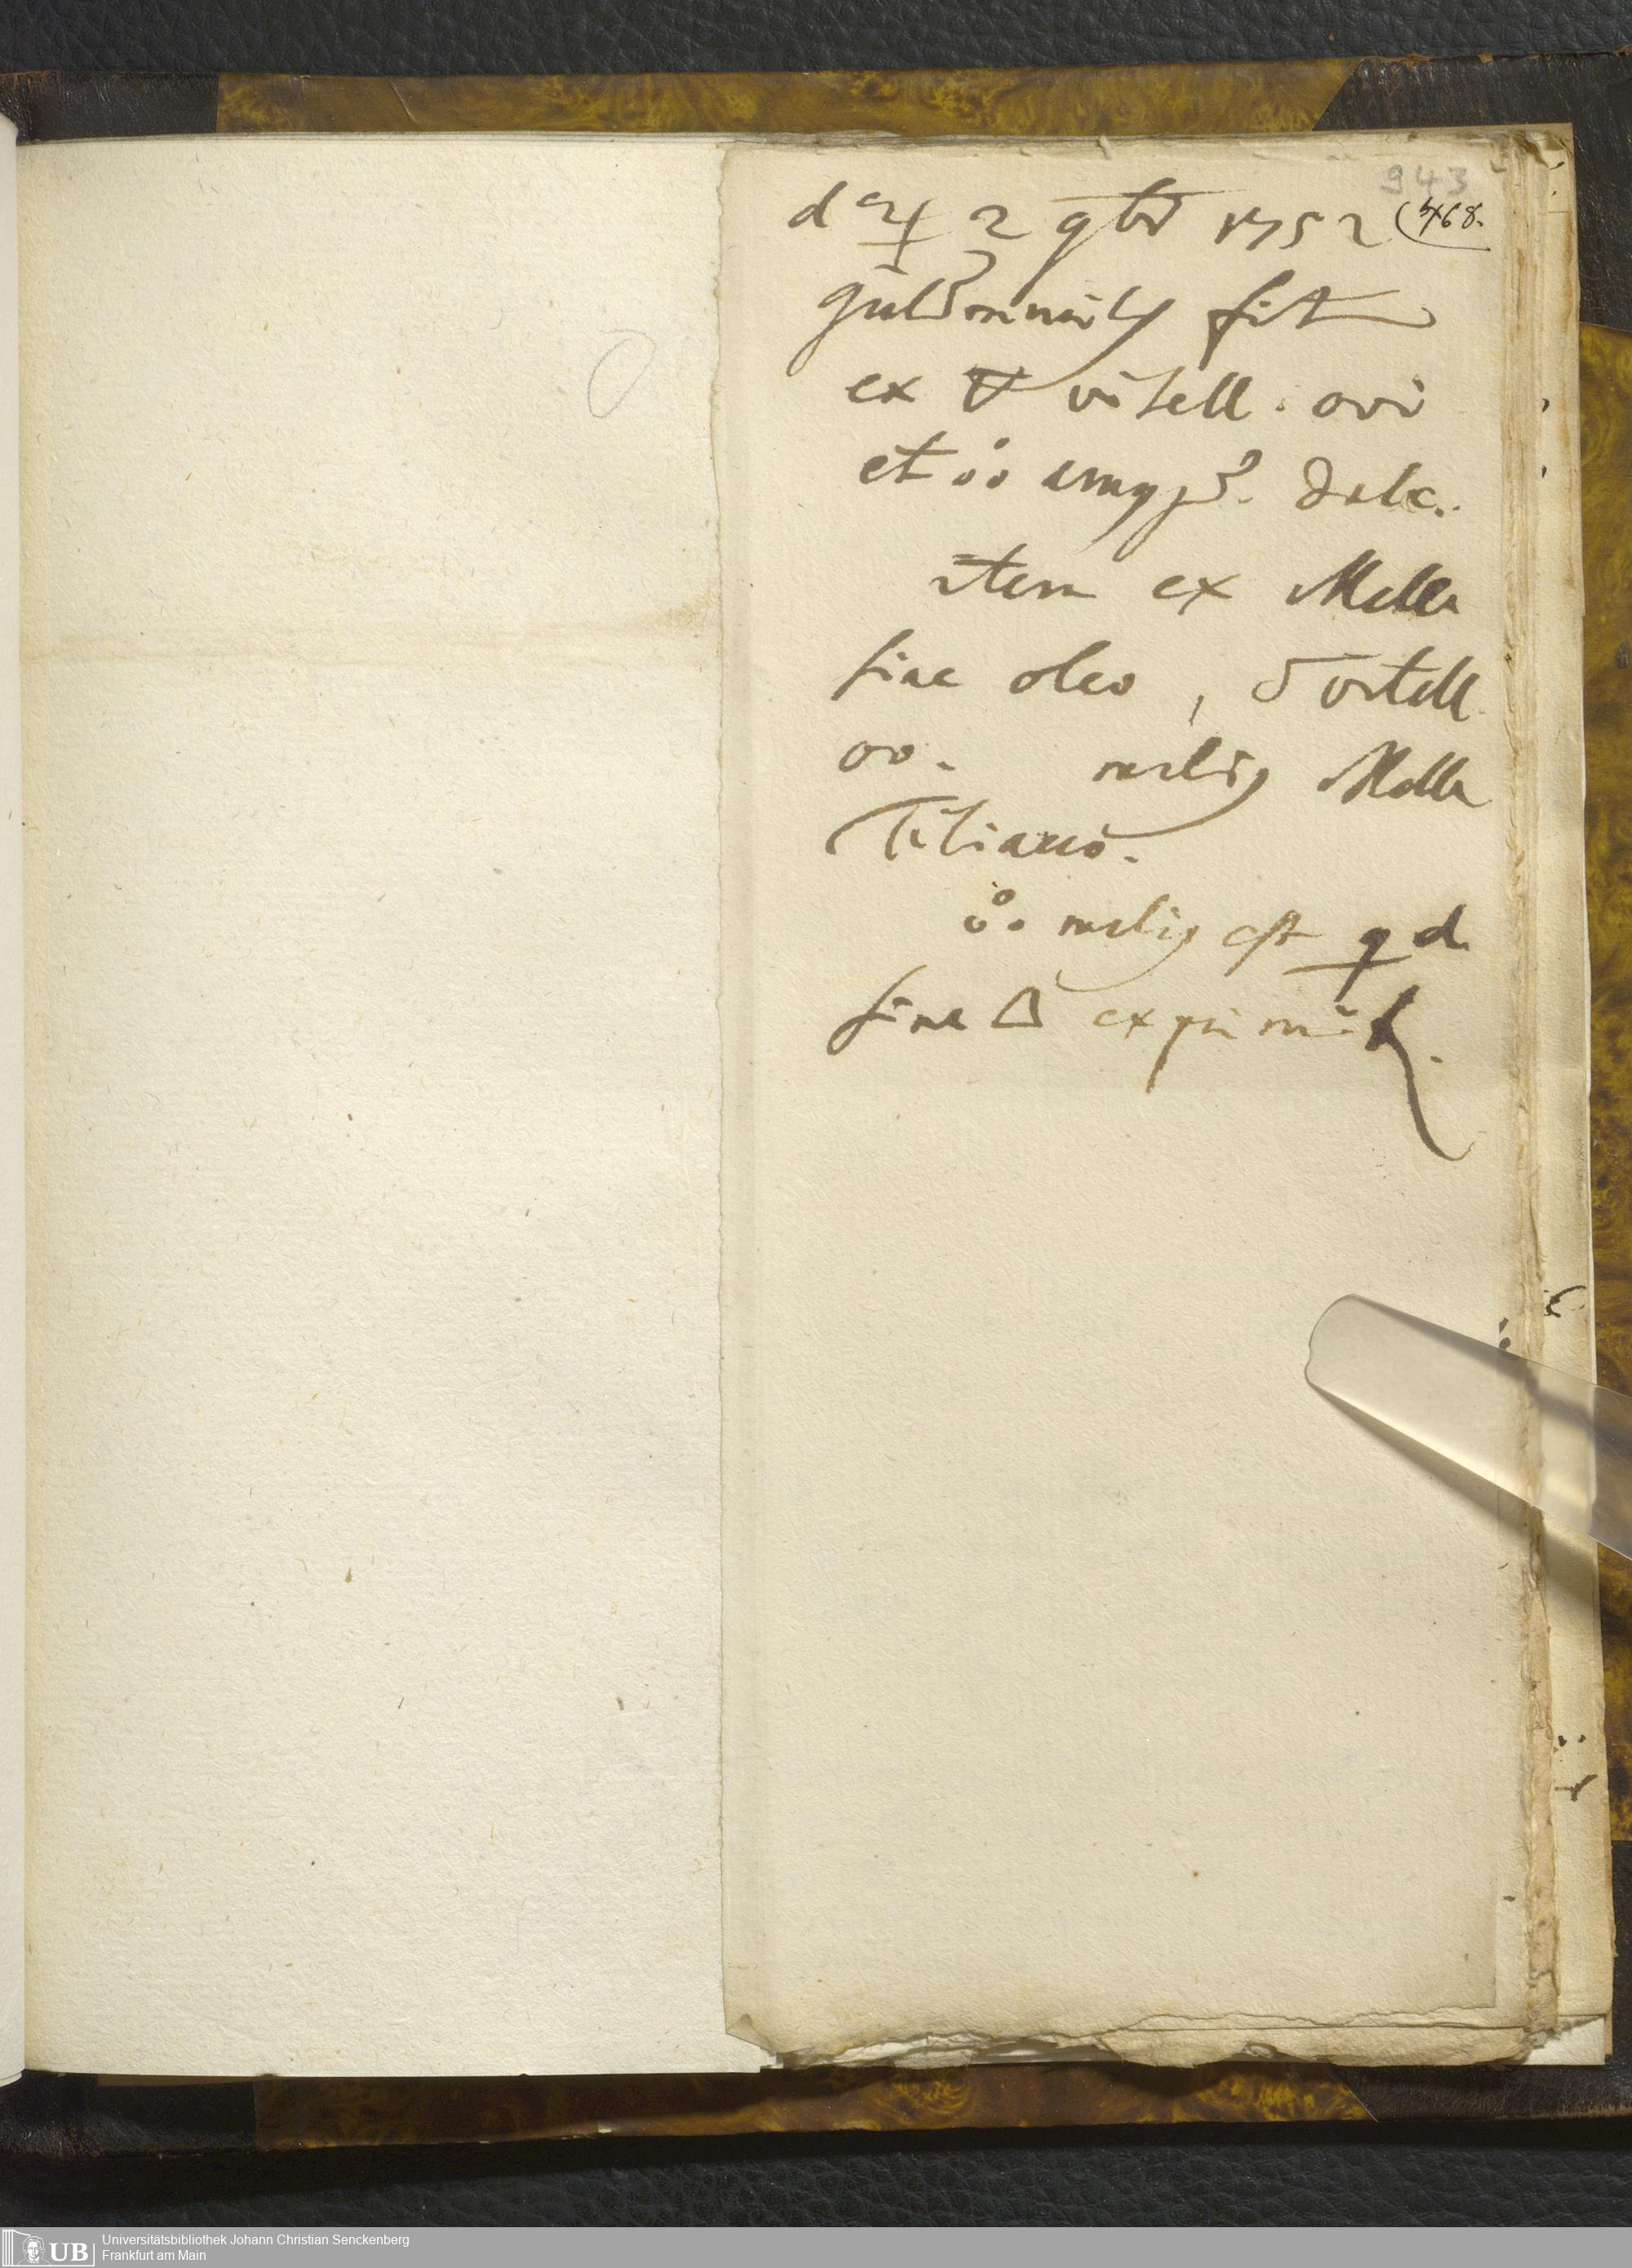 943
d ♃ 2 9br 1752 (468.
güldenmilch fit
ex ∀ vitell. ovi
et o°o amygd. dulc.
item ex Mella
giae oleo, vitell
ov. melius Mella
Tiliacio.
o°o melius est qd
sine △ exprimit.
Universitätsbibliothek Johann Christian Senckenberg
Frankfurt am Main
UB